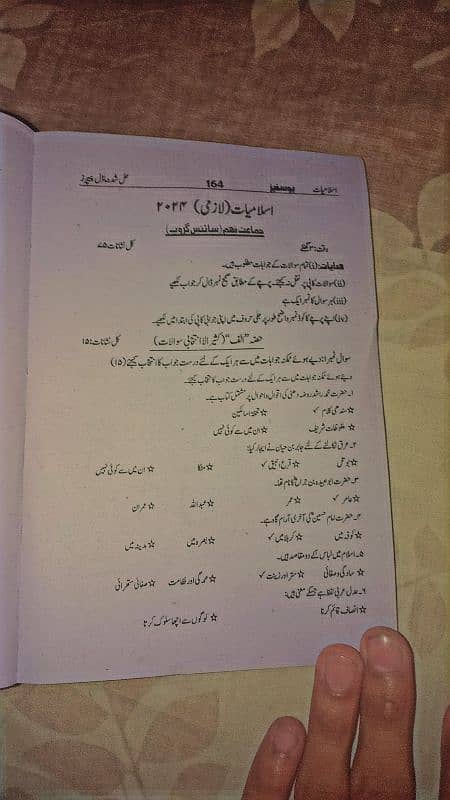 اسلامیات یوسفیز 164 حل شدہ ماڈل پیپرز
اسلامیات (لازمی) ۲۰۲۴
جماعت نہم (سائنس گروپ)
وقت: ۳ گھنٹے کل نشانات ۷۵
ہدایات: (i) تمام سوالات کے جوابات مطلوب ہیں۔
(ii) سوالات کاپی پر نقل نہ کیجئے۔ پرچے کے مطابق صحیح نمبر ڈال کر جواب لکھیے
(iii) ہر سوال کا نمبر ایک ہے
(iv) اپنے پرچے کا کوڈ نمبر واضح طور پر جلی حروف میں اپنی جوابی کاپی کی ابتدا میں لکھیے۔
حصہ "الف" (کثیر الانتخابی سوالات) کل نشانات: ۱۵
سوال نمبر ۱: دیے ہوئے ممکنہ جوابات میں سے ہر ایک کے لئے درست جواب کا انتخاب کیجئے (۱۵)
دیئے ہوئے ممکنہ جوابات میں سے ہر ایک کے لئے درست جواب کا انتخاب کیجئے۔
۱۔ حضرت محمد راشد روضہ دھنی کی اقوال و احوال پر مشتمل کتاب ہے۔
☆ سندھی کلام ✓ ☆ تحفۃ السالکین
☆ ملفوظات شریف ☆ ان میں سے کوئی نہیں
۲۔ عرق نکالنے کے لئے جابر بن حیان نے ایجاد کیا:
☆ بوتلی ☆ قرع انبیق ✓ ☆ مٹکا ☆ ان میں سے کوئی نہیں
۳۔ حضرت ابو عبیدہ بن جراح کا نام تھا۔
☆ عامر ✓ ☆ عمر ☆ عبداللہ ☆ عمران
۴۔ حضرت امام حسینؓ کی آخری آرام گاہ ہے۔
☆ کوفہ میں ☆ کربلا میں ✓ ☆ بصرہ میں ☆ مدینہ میں
۵۔ اسلام میں لباس کے دو مقاصد ہیں۔
☆ سادگی و صفائی ☆ ستر اور زینت ✓ ☆ عمدگی اور نظامت ☆ صفائی ستھرائی
۶۔ عدل عربی لفظ ہے جسکے معنی ہیں:
☆ انصاف قائم کرنا ☆ لوگوں سے اچھا سلوک کرنا